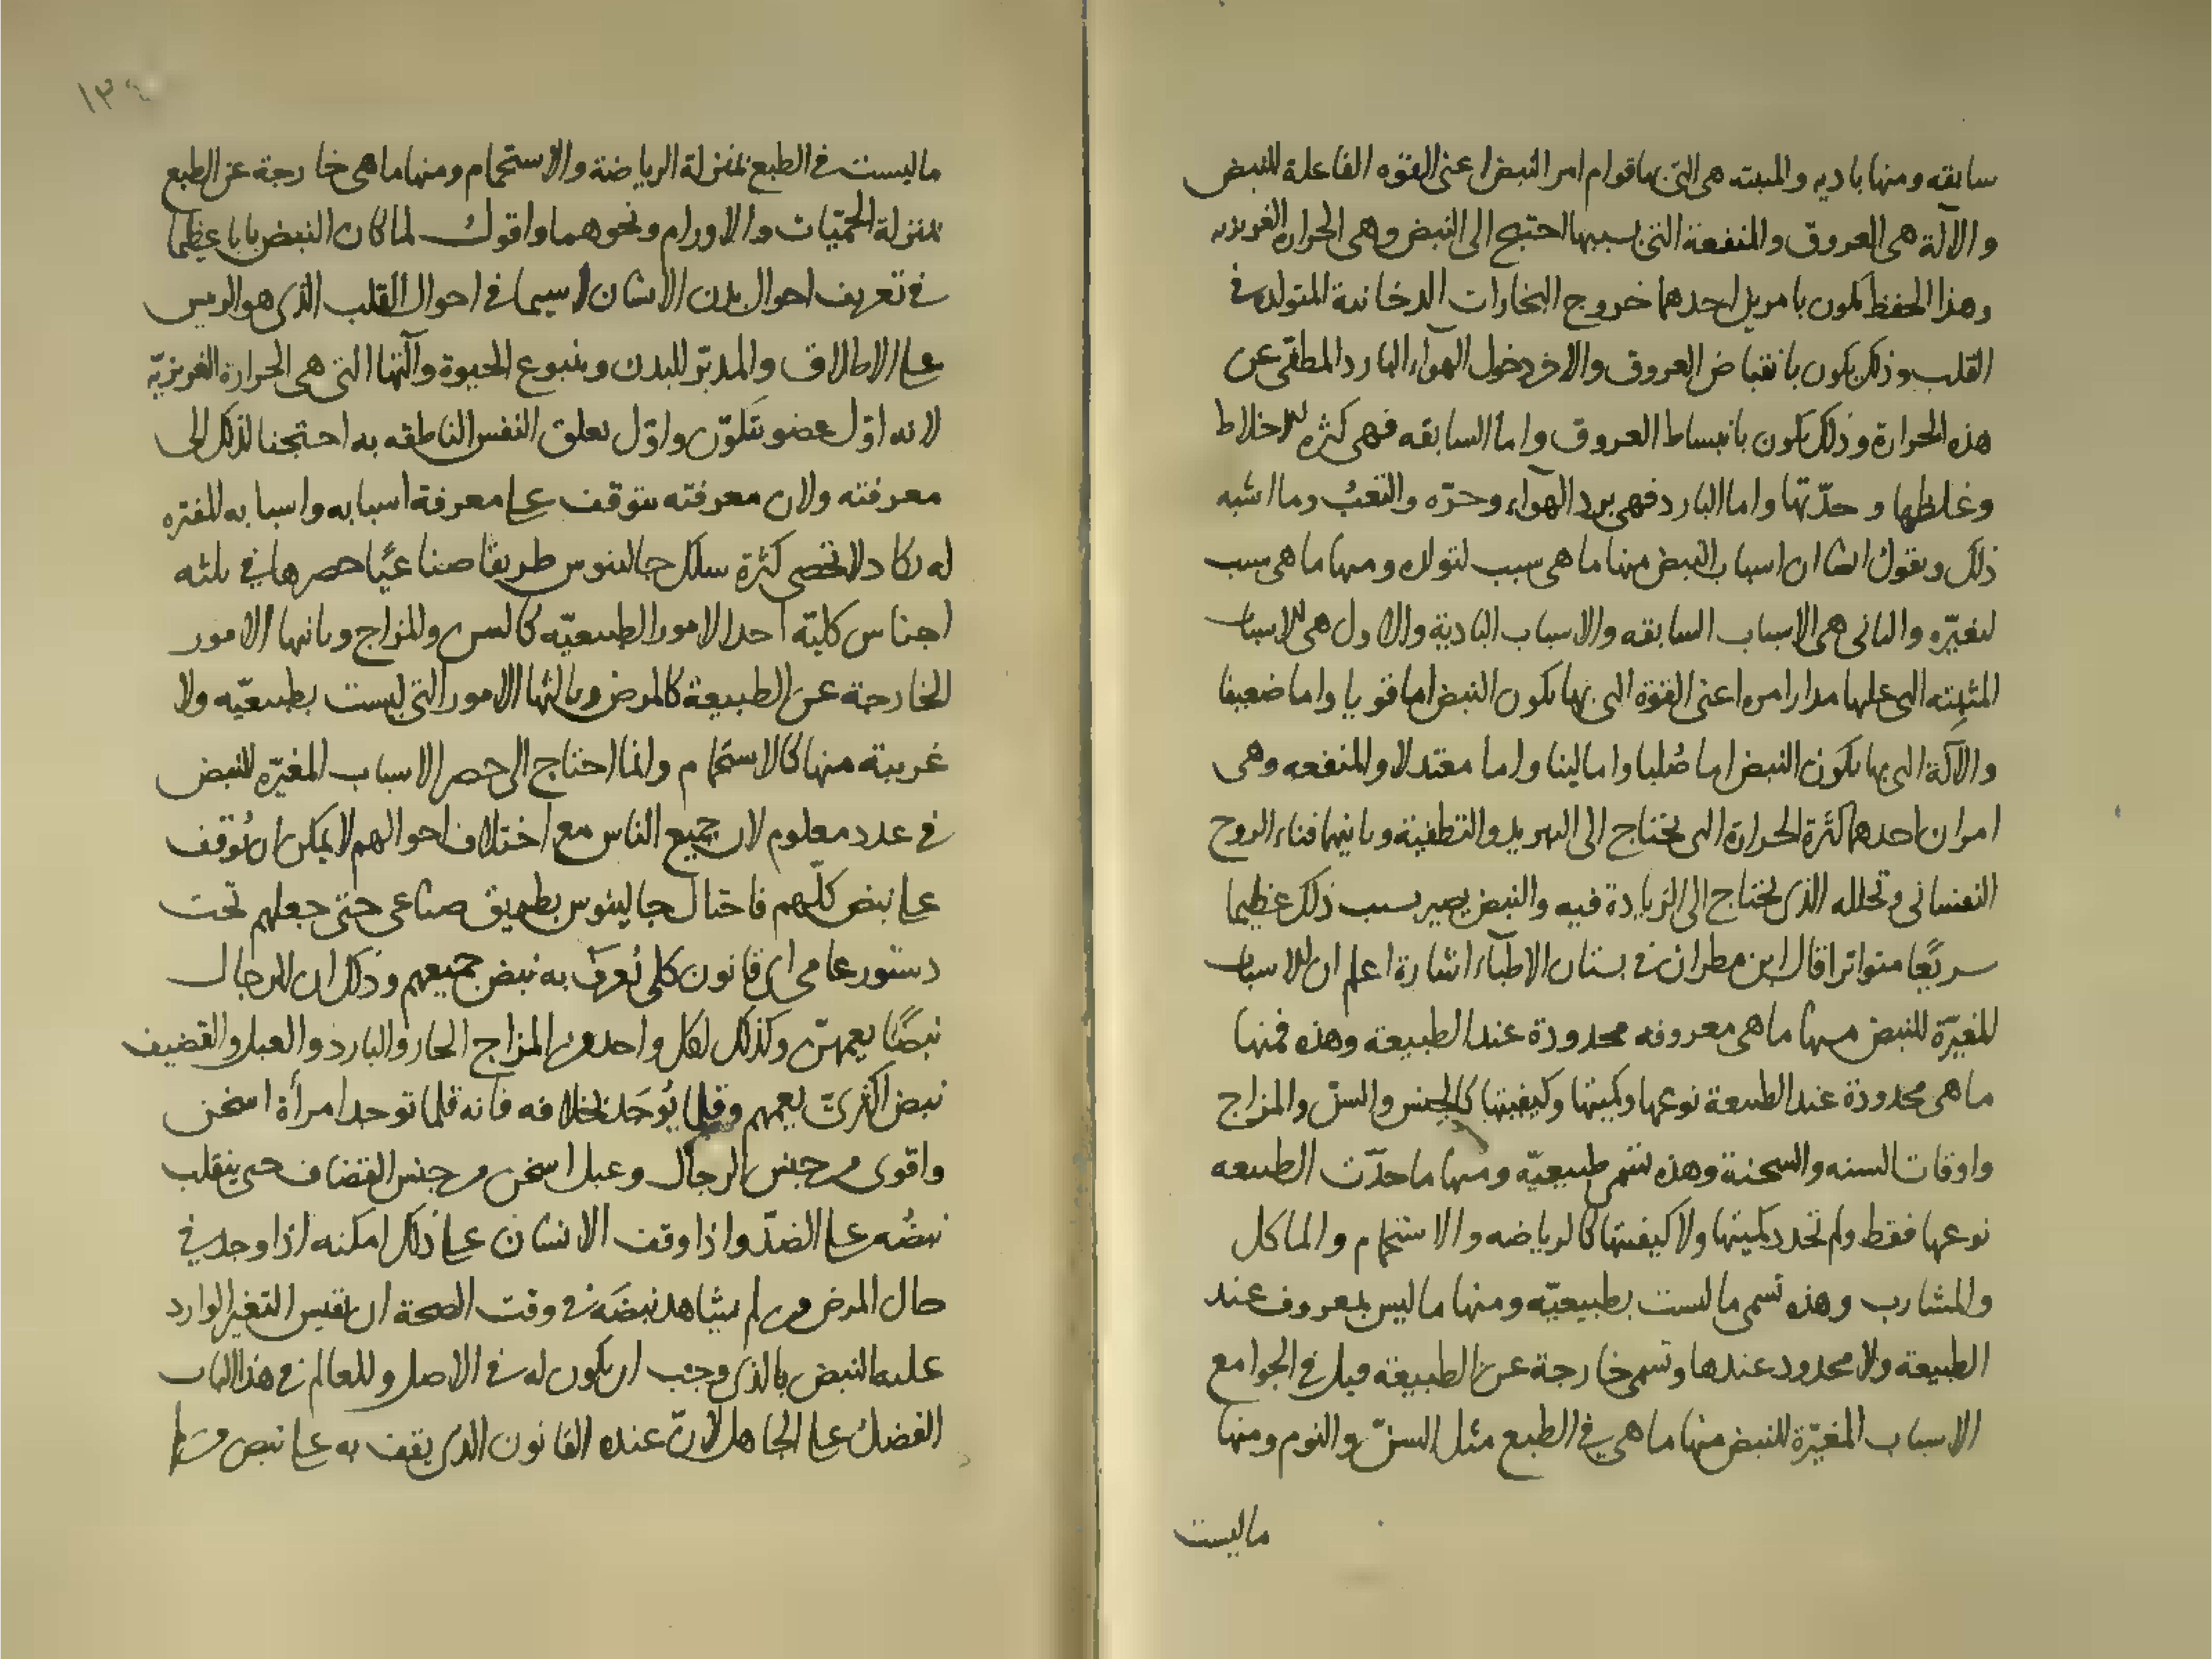 سابقه ومنها باديه والمثبته هى التى بها قوام امر النبض اعنى القوه الفاعلة للنبض
والآلة هى العروق والمنفعة التى بسببها احتيج الى النبض وهى الحرارة الغريزيه
وهذا الحفظ يكون بامرين احدهما خروج البخارات الدخانية المتولده فى
القلب وذلك يكون بانقباض العروق والاخر دخول الهوآء البارد المطفى عن
هذه الحرارة وذلك يكون بانبساط العروق واما السابقه فهى كثره الاخلاط
وغلظها وحدّتها واما البارد فهى برد الهوآء وحرّه والتعب وما اشبه
ذلك ونقول ايضا ان اسباب النبض منها ما هى سبب لتولده ومنها ما هى سبب
لتغيّره والثانى هى الاسباب السابقه والاسباب البادية والاول هى الاسباب
المثبته التى عليها مدار امره اعنى القوة التى بها يكون النبض اما قويا واما ضعيفا
والآلة التى بها يكون النبض اما صُلبا واما لينا واما معتدلا والمنفعه وهى
امران احدهما كثرة الحرارة التى تحتاج الى التبريد والتطفية وثانيها فناء الروح
النفسانى وتحلله الذى يحتاج الى الزيادة فيه والنبض يصير بسبب ذلك عظيما
سريعًا متواترا قال ابن مطران فى بستان الاطباء اشارة اعلم ان الاسباب
المغيّرة للنبض منها ما هى معروفه محدودة عند الطبيعة وهذه فمنها
ما هى محدودة عند الطبيعة نوعها وكميتها وكيفيتها كالجنس والسنّ والمزاج
واوقات السنه والسحنة وهذه تسمى طبيعيّه ومنها ما حدّت الطبيعه
نوعها فقط ولم تحدد كميتها ولا كيفيتها كالرياضه والاستحمام والماكل
والمشارب وهذه تسمى ما ليست بطبيعيّه ومنها ما ليس بمعروف عند
الطبيعة ولا محدود عندها وتسمى خارجة عن الطبيعة قيل فى الجوامع
الاسباب المغيّرة للنبض منها ما هى فى الطبع مثل السنّ والنوم ومنها
ماليست
١٣
ما ليست فى الطبع بمنزلة الرياضة والاستحمام ومنها ما هى خارجة عن الطبع
بمنزلة الحمّيات والاورام ونحوهما واقول لما كان النبض بابا عظيما
فى تعريف احوال بدن الانسان لاسيما فى احوال القلب الذى هو الريس
على الاطلاق والمدبّر للبدن وينبوع الحيوة وآلتها التى هى الحرارة الغريزيّه
لانه اوّل عضو يتكوّن واوّل تعلق النفس الناطقه به احتجنا لذلك الى
معرفته ولان معرفته تتوقف على معرفة اسبابه واسبابه المغيره
له تكاد لا تحصى كثرة سلك جالينوس طريقًا صناعيًا حصرها فى ثلثه
اجناس كليّة احدا الامور الطبيعيّه كالسن والمزاج وثانيها الامور
الخارجة عن الطبيعة كالمرض وثالثها الامور التى ليست بطبيعيّه ولا
غريبة منها كالاستحمام وانما احتاج الى حصر الاسباب المغيّره للنبض
فى عدد معلوم لان جميع الناس مع اختلاف احوالهم لا يمكن ان يُوقف
على نبض كلّهم فاحتال جالينوس بطريق صناعى حتى جعلهم تحت
دستور عامى اى قانون كلى يُعرف به نبض جميعهم وذلك ان للرجال
نبضًا يعمهمّ وكذلك لكل واحد من المزاج الحار والبارد والعبل والقضيف
نبض اكثرىّ يعمهم وقلما يُوجَد بخلافه فانه قلما توجد امرأة اسخن
واقوى من جنس الرجال وعبل اسخن من جنس القضاف حتى ينقلب
نبضُه على الضدّ واذا وقف الانسان على ذلك امكنه اذا وجد فى
حال المرض من لم يشاهد نبضَه فى وقت الصحة ان يقيس التغير الوارد
عليه النبض بالذى وجب ان يكون له فى الاصل وللعالم فى هذا الباب
الفضل على الجاهل لانّ عنده القانون الذى يقف به على نبض